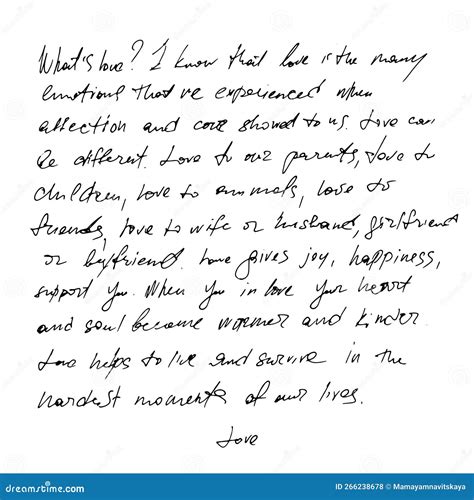 What's love? I know that love is the many
emotions that've experienced when
affection and care showed to us. Love can
be different. Love to our parents, love to
children, love to animals, love to
friends, love to wife or husband, girlfriend
or boyfriend. Love gives joy, happiness,
support you. When you in love your heart
and soul become warmer and kinder.
Love helps to live and survive in the
hardest moments of our lives.
Love
dreamstime.com
ID 266238678 © Mamayamnavitskaya